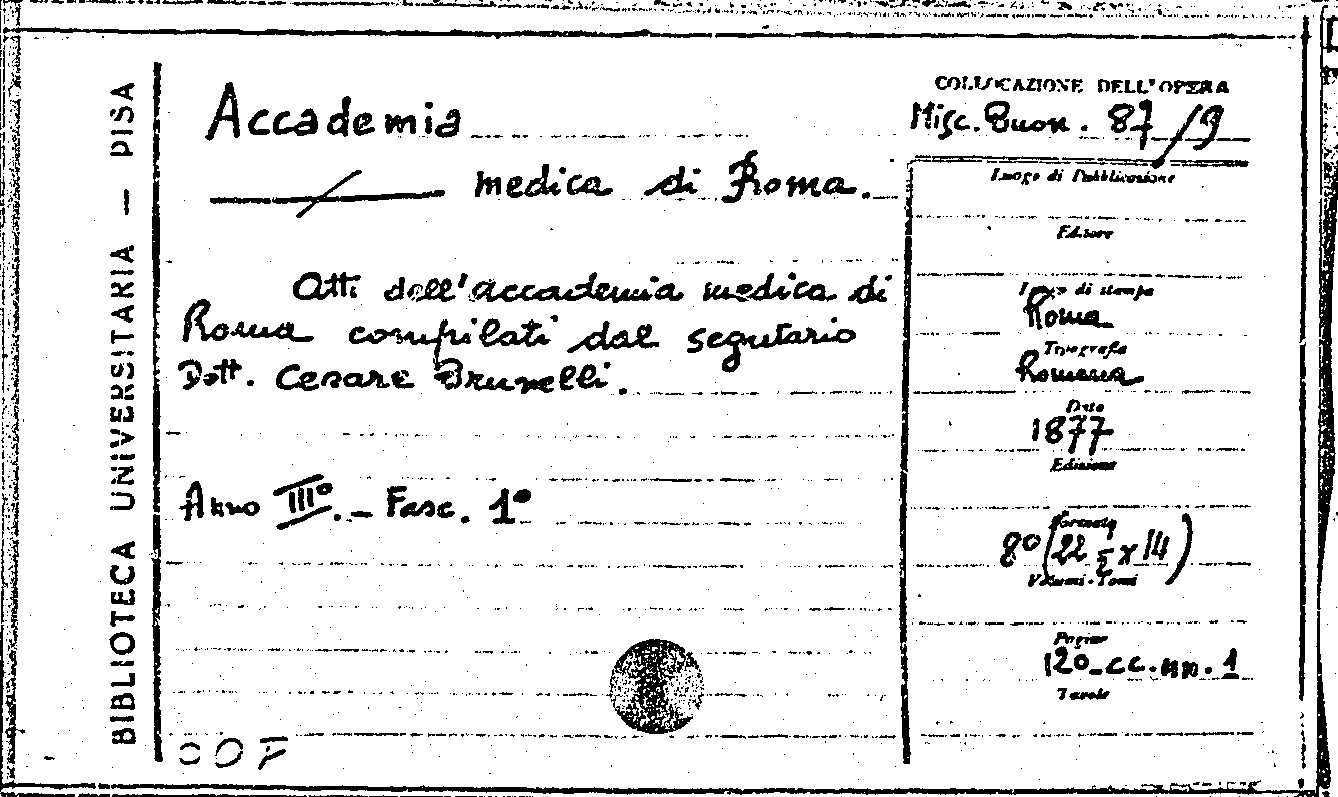 BIBLIOTECA UNIVERSITARIA — PISA
Accademia
medica di Roma.
Atti dell'accademia medica di
Roma compilati dal segretario
Dott. Cesare Brunelli.
Anno III°. - Fasc. 1°
COLLOCAZIONE DELL'OPERA
Misc. Buon. 87/9
Luogo di Pubblicazione
Editore
Luogo di stampa
Roma
Tipografia
Romana
Data
1877
Edizione
Formato
8° (22 5 x 14)
Volumi - Tomi
Pagine
120 - cc. nn. 1
Tavole